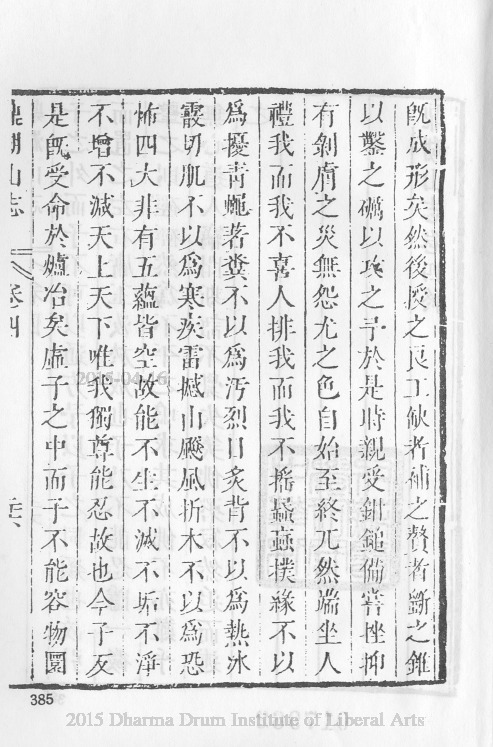 旣成形矣然後授之良工缺者補之贅者斷之錐
以鑿之礪以攻之予於是時親受鉗鎚備嘗挫抑
有剝膚之災無怨尤之色自始至終兀然端坐人
禮我而我不喜人排我而我不搖撲緣不以
爲擾青蠅著糞不以爲汚烈日炙背不以爲熱氷
霰切肌不以爲寒疾雷撼山飈風折木不以爲恐
怖四大非有五蘊皆空故能不生不滅不垢不淨
不增不滅天上天下唯我獨尊能忍故也今子反
是旣受命於爐冶矣虛子之中而子不能容物圜
鼎湖山志 卷四
385
2015 Dharma Drum Institute of Liberal Arts